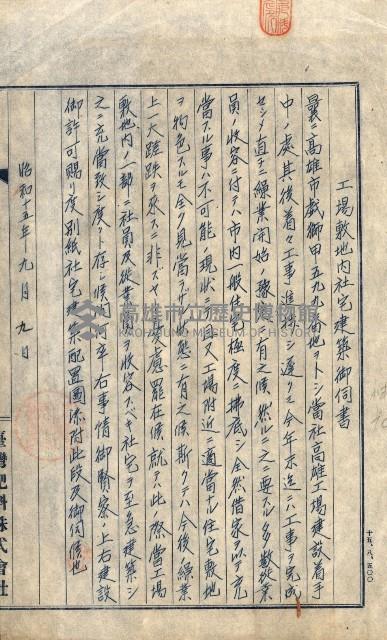 工場敷地内社宅建築御伺書
曩ニ高雄市戲獅甲五九九番地ヲトシ當社高雄工場建設着手
中ノ處其後着々工事進捗シ遲クモ今年末迄ニハ工事ヲ完成
セシメ直チニ操業開始ノ豫定ニ有之候然ルニ之ニ要スル多數從業
員ノ收容ニ付テハ市内一般住宅極度ニ拂底シ全然借家以テ充
當スル事ハ不可能ノ現狀ニ有之且又工場附近ニ適當ナル住宅敷地
ヲ物色スルモ全ク見當ラザル狀態ニ有之候斯クテハ今後操業
上一大蹉跌ヲ來スニ非ズヤト憂慮罷在候就テハ此ノ際當工場
敷地内ノ一部ニ社員及從業員ヲ收容スベキ社宅ヲ至急建築シ
之ニ充當致シ度クト存ジ候間何卒右事情御賢察ノ上右建設
御許可賜リ度別紙社宅建築配置圖添附此段及御伺候也
昭和十五年九月九日
臺灣肥料株式會社
十五、八、五〇〇
高雄市立歷史博物館
KAOHSIUNG MUSEUM OF HISTORY